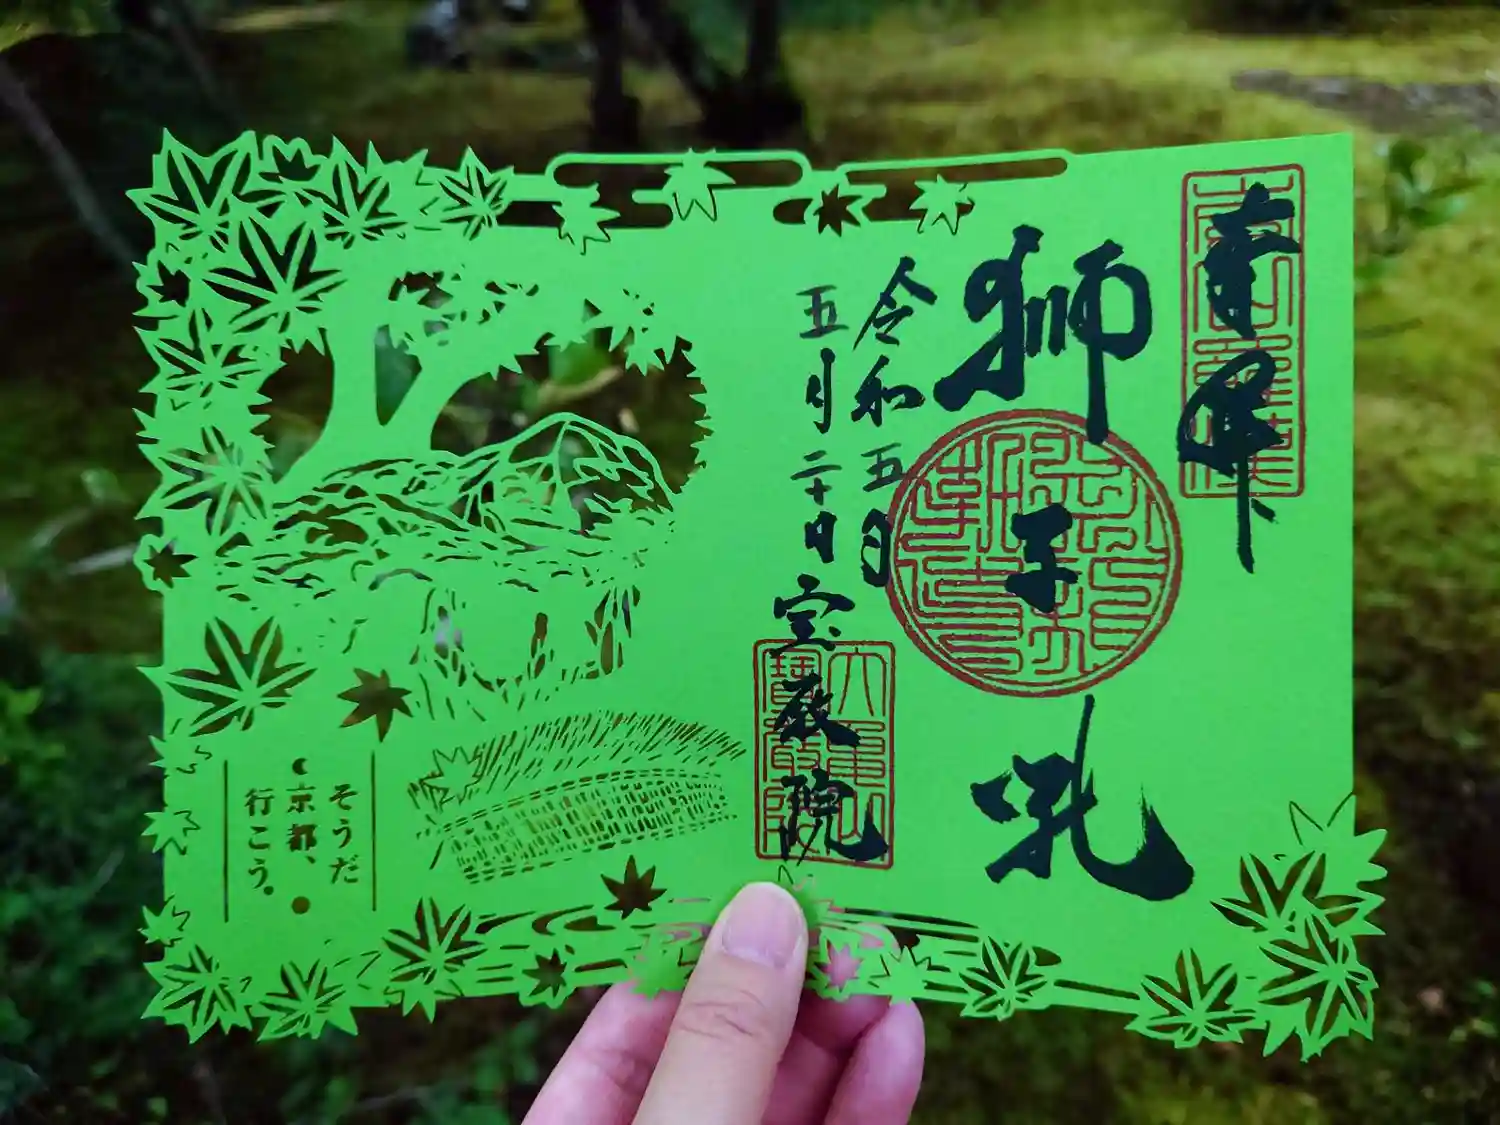 奉拝
獅子吼
令和五年
五月二十日 宝厳院
大亀山
寶嚴院
そうだ
京都、
行こう。